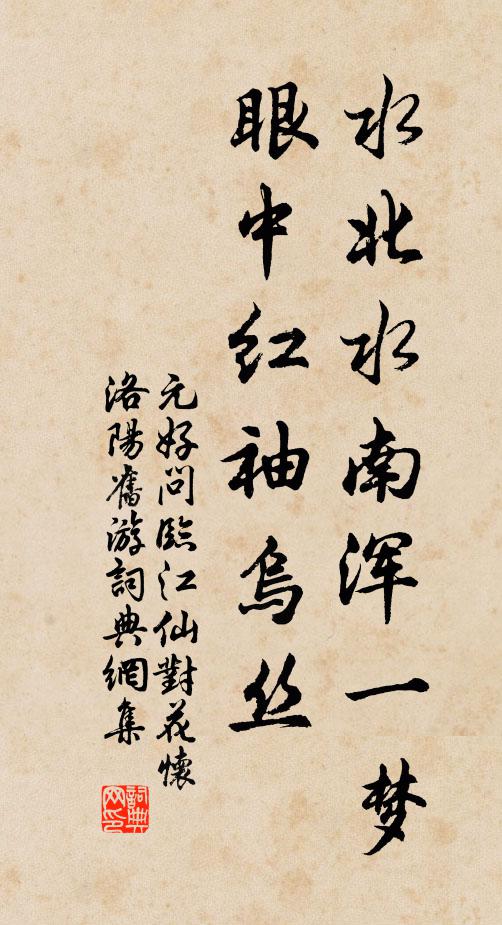 水北水南浑一梦
眼中红袖乌丝
元好问臨江仙對花懷
洛陽舊游詞典網集
詞典网印